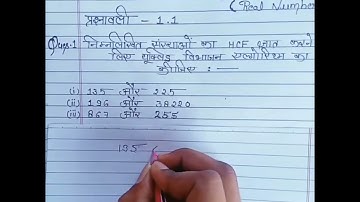 (Real Number
प्रश्नावली - 1.1
Ques-1 निम्नलिखित संख्याओं का HCF ज्ञात करने
लिए यूक्लिड विभाजन एल्गोरिथ्म का
कीजिए : —
(i) 135 और 225
(ii) 196 और 38220
(iii) 867 और 255
135 (